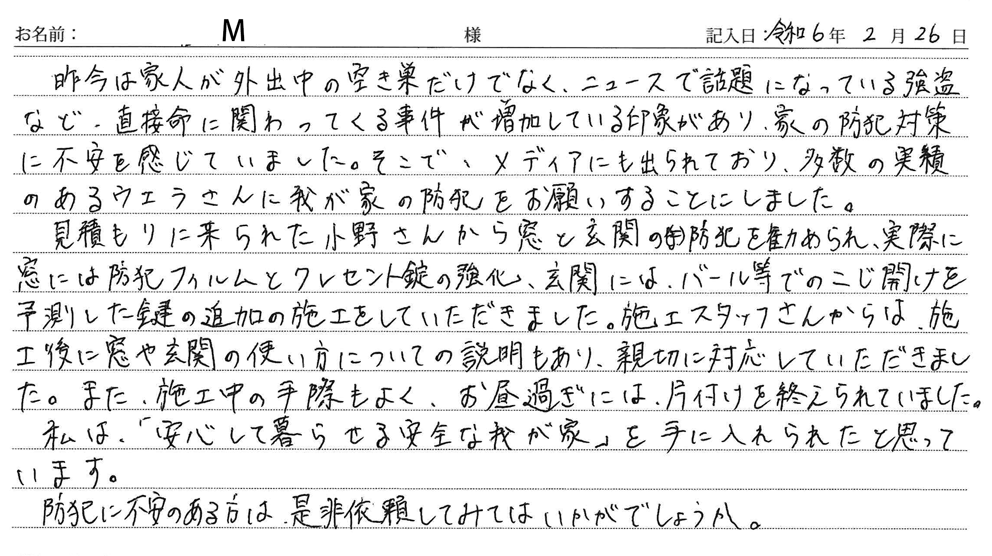 お名前： M 様 記入日：令和6年 2月26日
昨今は家人が外出中の空き巣だけでなく、ニュースで話題になっている強盗
など、直接命に関わってくる事件が増加している印象があり、家の防犯対策
に不安を感じていました。そこで、メディアにも出られており、多数の実績
のあるウエラさんに我が家の防犯をお願いすることにしました。
見積もりに来られた小野さんから窓と玄関の防犯を勧められ、実際に
窓には防犯フィルムとクレセント錠の強化、玄関には、バール等でのこじ開けを
予測した鍵の追加の施工をしていただきました。施工スタッフさんからは、施
工後に窓や玄関の使い方についての説明もあり、親切に対応していただきまし
た。また、施工中の手際もよく、お昼過ぎには、片付けを終えられていました。
私は、「安心して暮らせる安全な我が家」を手に入れられたと思って
います。
防犯に不安のある方は、是非依頼してみてはいかがでしょうか。